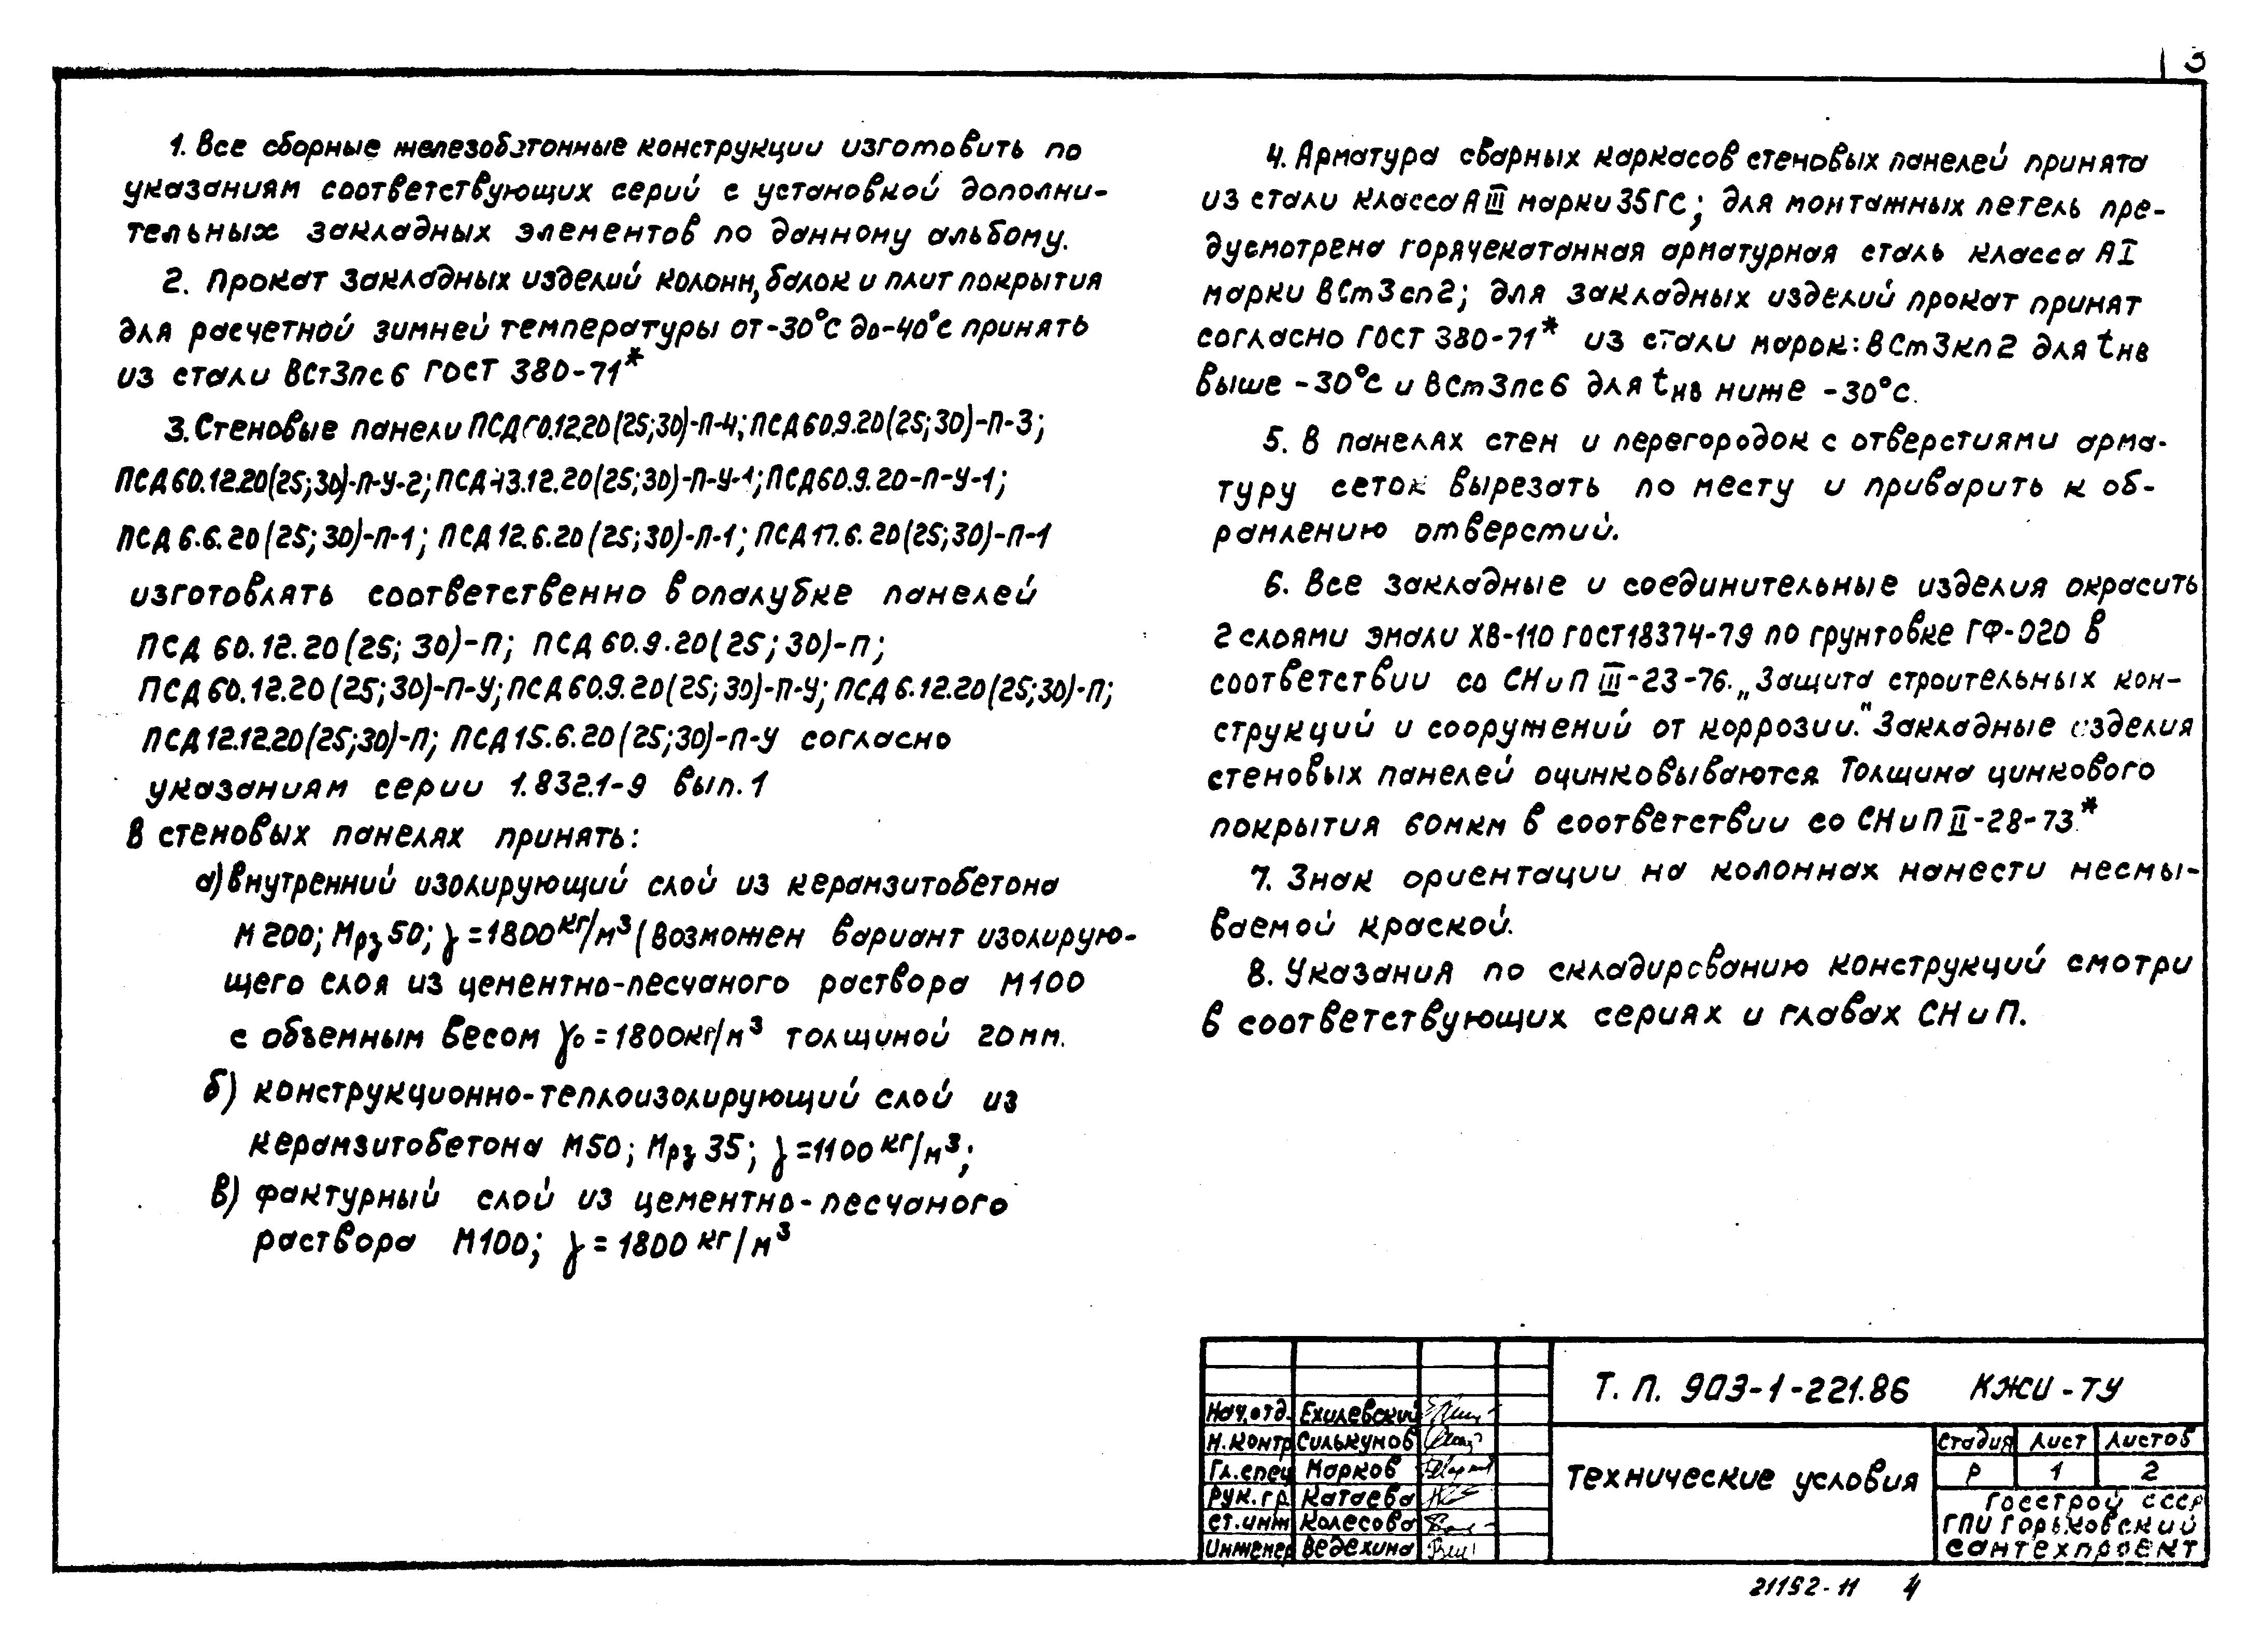 3
1. Все сборные железобетонные конструкции изготовить по
указаниям соответствующих серий с установкой дополни-
тельных закладных элементов по данному альбому.
2. Прокат закладных изделий колонн, балок и плит покрытия
для расчетной зимней температуры от -30°с до -40°с принять
из стали ВСт3пс6 ГОСТ 380-71*
3. Стеновые панели ПСД60.12.20(25;30)-П-4; ПСД60.9.20(25;30)-П-3;
ПСД60.12.20(25;30)-П-У-2; ПСД 13.12.20(25;30)-П-У-1; ПСД60.9.20-П-У-1;
ПСД 6.6.20(25;30)-П-1; ПСД 12.6.20(25;30)-П-1; ПСД 17.6.20(25;30)-П-1
изготовлять соответственно в опалубке панелей
ПСД 60.12.20(25; 30)-П; ПСД 60.9.20(25; 30)-П;
ПСД 60.12.20(25;30)-П-У; ПСД 60.9.20(25;30)-П-У; ПСД 6.12.20(25;30)-П;
ПСД 12.12.20(25;30)-П; ПСД 15.6.20(25;30)-П-У согласно
указаниям серии 1.832.1-9 вып. 1
В стеновых панелях принять:
а) внутренний изолирующий слой из керамзитобетона
М 200; Мрз 50; γ = 1800 кг/м³ (возможен вариант изолирую-
щего слоя из цементно-песчаного раствора М 100
с объемным весом γо = 1800кг/м³ толщиной 20мм.
б) конструкционно-теплоизолирующий слой из
керамзитобетона М50; Мрз 35; γ = 1100 кг/м³;
в) фактурный слой из цементно-песчаного
раствора М100; γ = 1800 кг/м³
4. Арматура сварных каркасов стеновых панелей принята
из стали класса А III марки 35ГС; для монтажных петель пре-
дусмотрена горячекатанная арматурная сталь класса А I
марки ВСт3сп2; для закладных изделий прокат принят
согласно ГОСТ 380-71* из стали марок: ВСт3кп2 для tнв
выше -30°С и ВСт3пс6 для tнв ниже -30°С.
5. В панелях стен и перегородок с отверстиями арма-
туру сеток вырезать по месту и приварить к об-
рамлению отверстий.
6. Все закладные и соединительные изделия окрасить
2 слоями эмали ХВ-110 ГОСТ18374-79 по грунтовке ГФ-020 в
соответствии со СНиП III-23-76. „Защита строительных кон-
струкций и сооружений от коррозии." Закладные изделия
стеновых панелей оцинковываются Толщина цинкового
покрытия 60мкм в соответствии со СНиП II-28-73*
7. Знак ориентации на колоннах нанести несмы-
ваемой краской.
8. Указания по складированию конструкций смотри
в соответствующих сериях и главах СНиП.
Т. П. 903-1-221.86 КЖИ - ТУ
Нач.отд. Ехилевский
Н.контр Силькунов
Гл.спец Марков
Рук.гр. Катаева
Ст.инж Колесова
Инженер Ведехина
Технические условия
Стадия Лист Листов
Р 1 2
Госстрой СССР
ГПИ Горьковский
Сантехпроект
21152-11 4